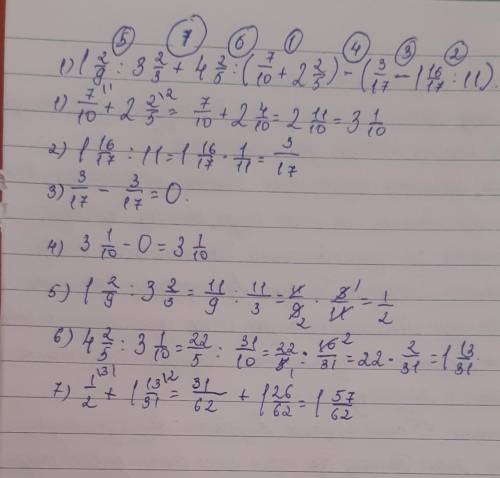 5 7 6 1 4 3 2
1) 1 2/9 : 3 2/3 + 4 2/5 : (7/10 + 2 2/5) - (3/17 - 1 16/17 : 11).
1) 7/10 \1 + 2 2/5 \2 = 7/10 + 2 4/10 = 2 11/10 = 3 1/10
2) 1 16/17 : 11 = 1 16/17 · 1/11 = 3/17
3) 3/17 - 3/17 = 0.
4) 3 1/10 - 0 = 3 1/10
5) 1 2/9 : 3 2/3 = 11/9 : 11/3 = 11/9 2 · 3 1/11 = 1/2
6) 4 2/5 : 3 1/10 = 22/5 : 31/10 = 22/5 1 · 10 2/31 = 22 · 2/31 = 1 13/31.
7) 1/2 \31 + 1 13/31 \2 = 31/62 + 1 26/62 = 1 57/62